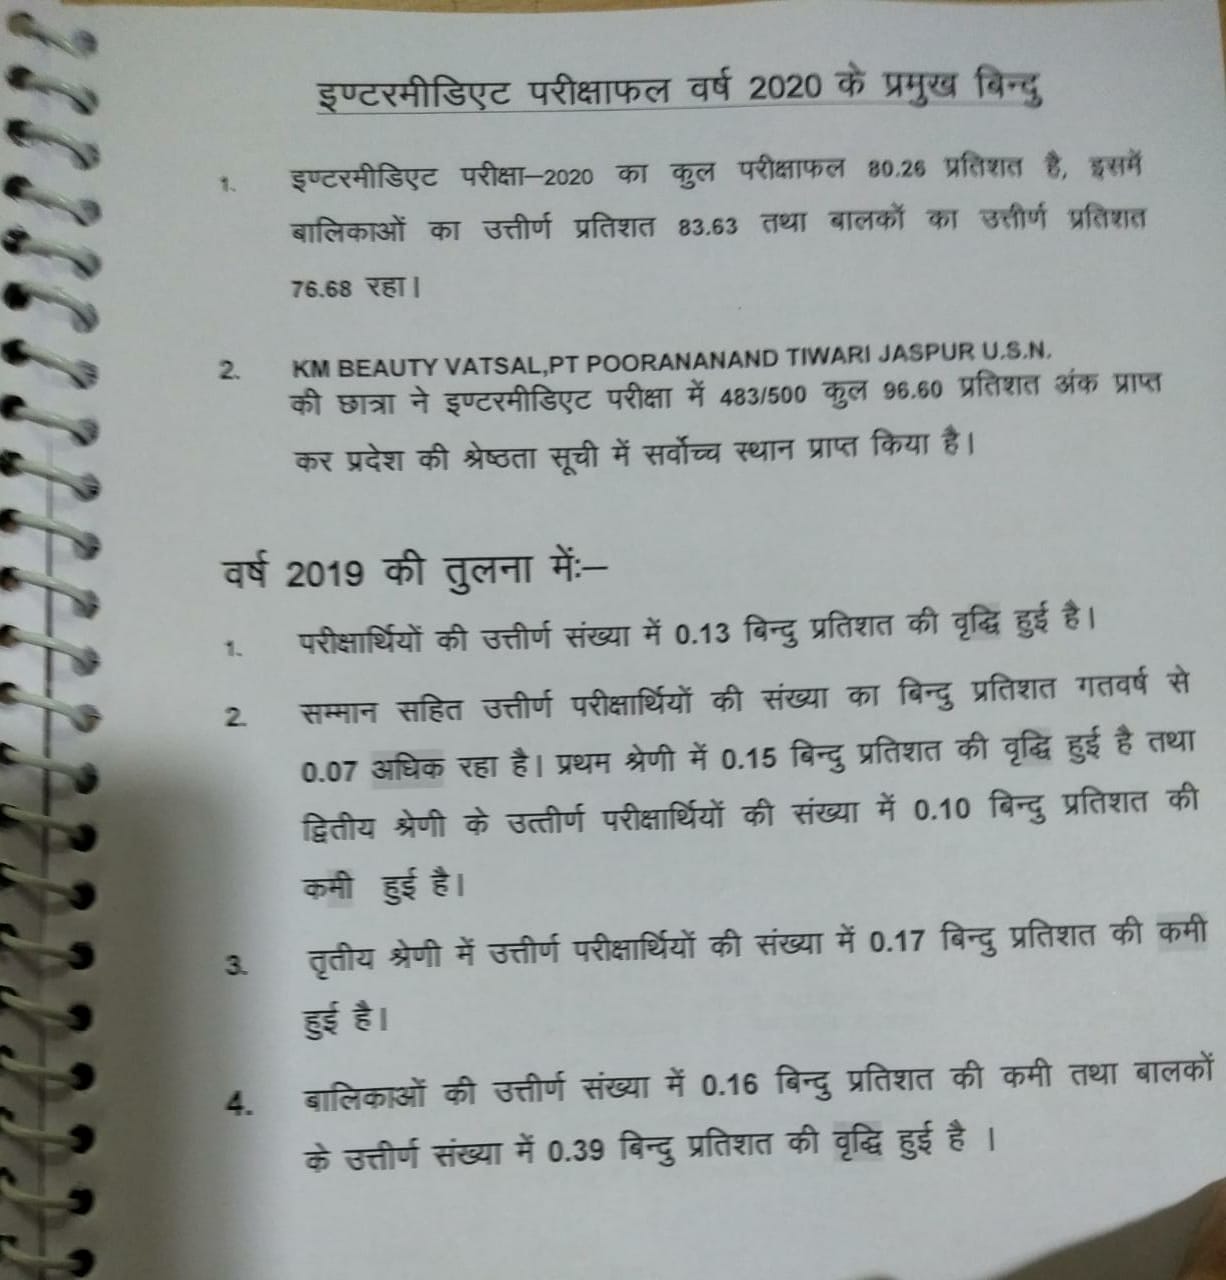 इण्टरमीडिएट परीक्षाफल वर्ष 2020 के प्रमुख बिन्दु
1. इण्टरमीडिएट परीक्षा–2020 का कुल परीक्षाफल 80.26 प्रतिशत है, इसमें
बालिकाओं का उत्तीर्ण प्रतिशत 83.63 तथा बालकों का उत्तीर्ण प्रतिशत
76.68 रहा।
2. KM BEAUTY VATSAL,PT POORANANAND TIWARI JASPUR U.S.N.
की छात्रा ने इण्टरमीडिएट परीक्षा में 483/500 कुल 96.60 प्रतिशत अंक प्राप्त
कर प्रदेश की श्रेष्ठता सूची में सर्वोच्च स्थान प्राप्त किया है।
वर्ष 2019 की तुलना में:–
1. परीक्षार्थियों की उत्तीर्ण संख्या में 0.13 बिन्दु प्रतिशत की वृद्धि हुई है।
2. सम्मान सहित उत्तीर्ण परीक्षार्थियों की संख्या का बिन्दु प्रतिशत गतवर्ष से
0.07 अधिक रहा है। प्रथम श्रेणी में 0.15 बिन्दु प्रतिशत की वृद्धि हुई है तथा
द्वितीय श्रेणी के उत्तीर्ण परीक्षार्थियों की संख्या में 0.10 बिन्दु प्रतिशत की
कमी हुई है।
3. तृतीय श्रेणी में उत्तीर्ण परीक्षार्थियों की संख्या में 0.17 बिन्दु प्रतिशत की कमी
हुई है।
4. बालिकाओं की उत्तीर्ण संख्या में 0.16 बिन्दु प्रतिशत की कमी तथा बालकों
के उत्तीर्ण संख्या में 0.39 बिन्दु प्रतिशत की वृद्धि हुई है ।